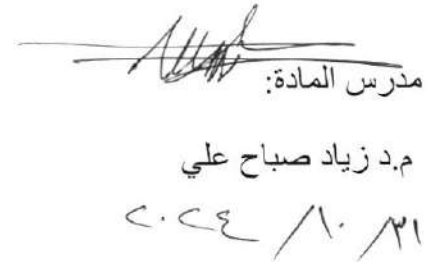 مدرس المادة:
م.د زياد صباح علي
٢٠٢٤/١٠/٣١